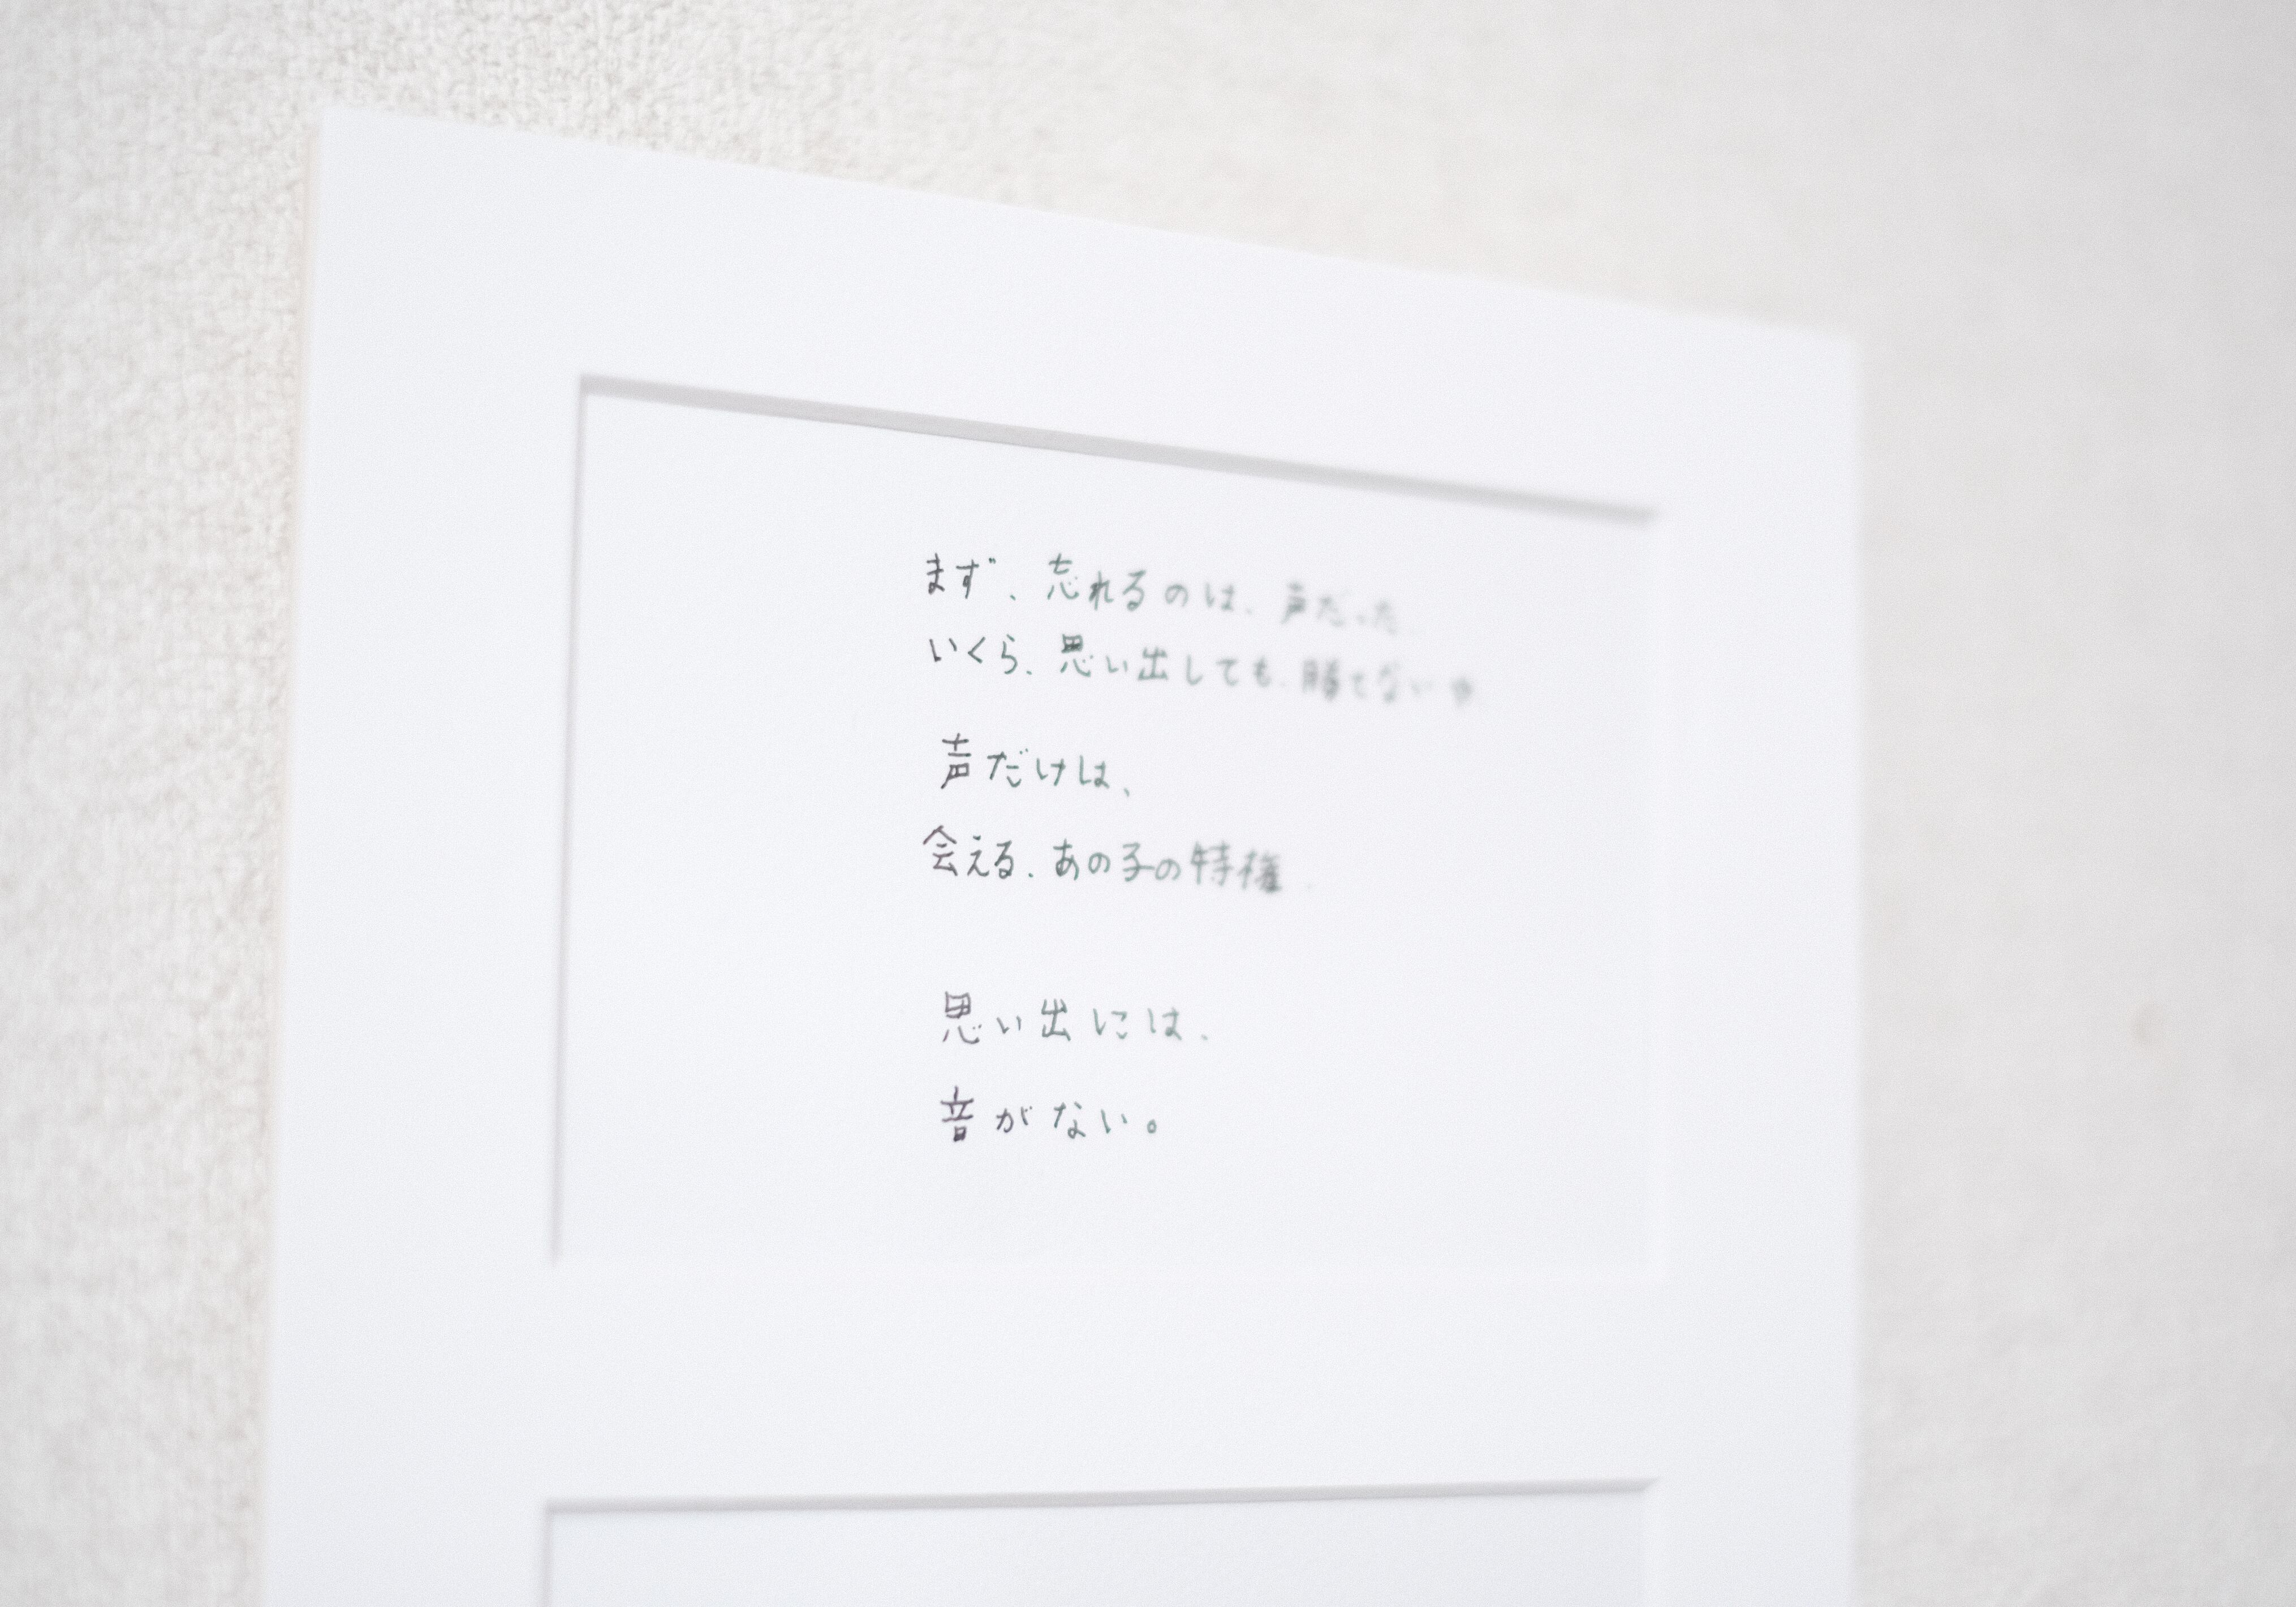 まず、忘れるのは、声だった
いくら、思い出しても、勝てないや
声だけは、
会える、あの子の特権
思い出には、
音がない。